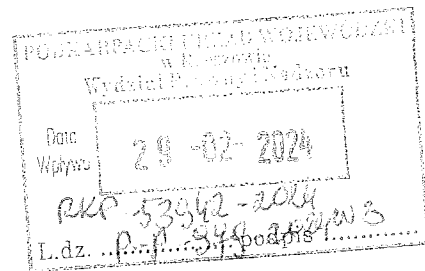 PODKARPACKI URZĄD WOJEWÓDZKI
w Rzeszowie
Wydział Prawny i Nadzoru
Data
Wpływu
29 -02- 2024
RKP 53942-2024
L.dz. podpis